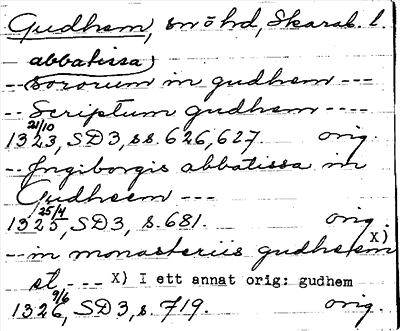 Gudhem, snöhd, Skarab. l.
abbatissa)
-- sororum in gudhem ---
-- Scriptum gudhem ----
1323 21/10, SD3, ss. 626, 627. orig.
-- Ingiborgis abbatissa in
Gudheem ---
1325 25/4, SD3, s. 681. orig.
-- in monasteriis gudheem x)
et, --- X) I ett annat orig: gudhem
1326 9/6, SD3, s. 719. orig.